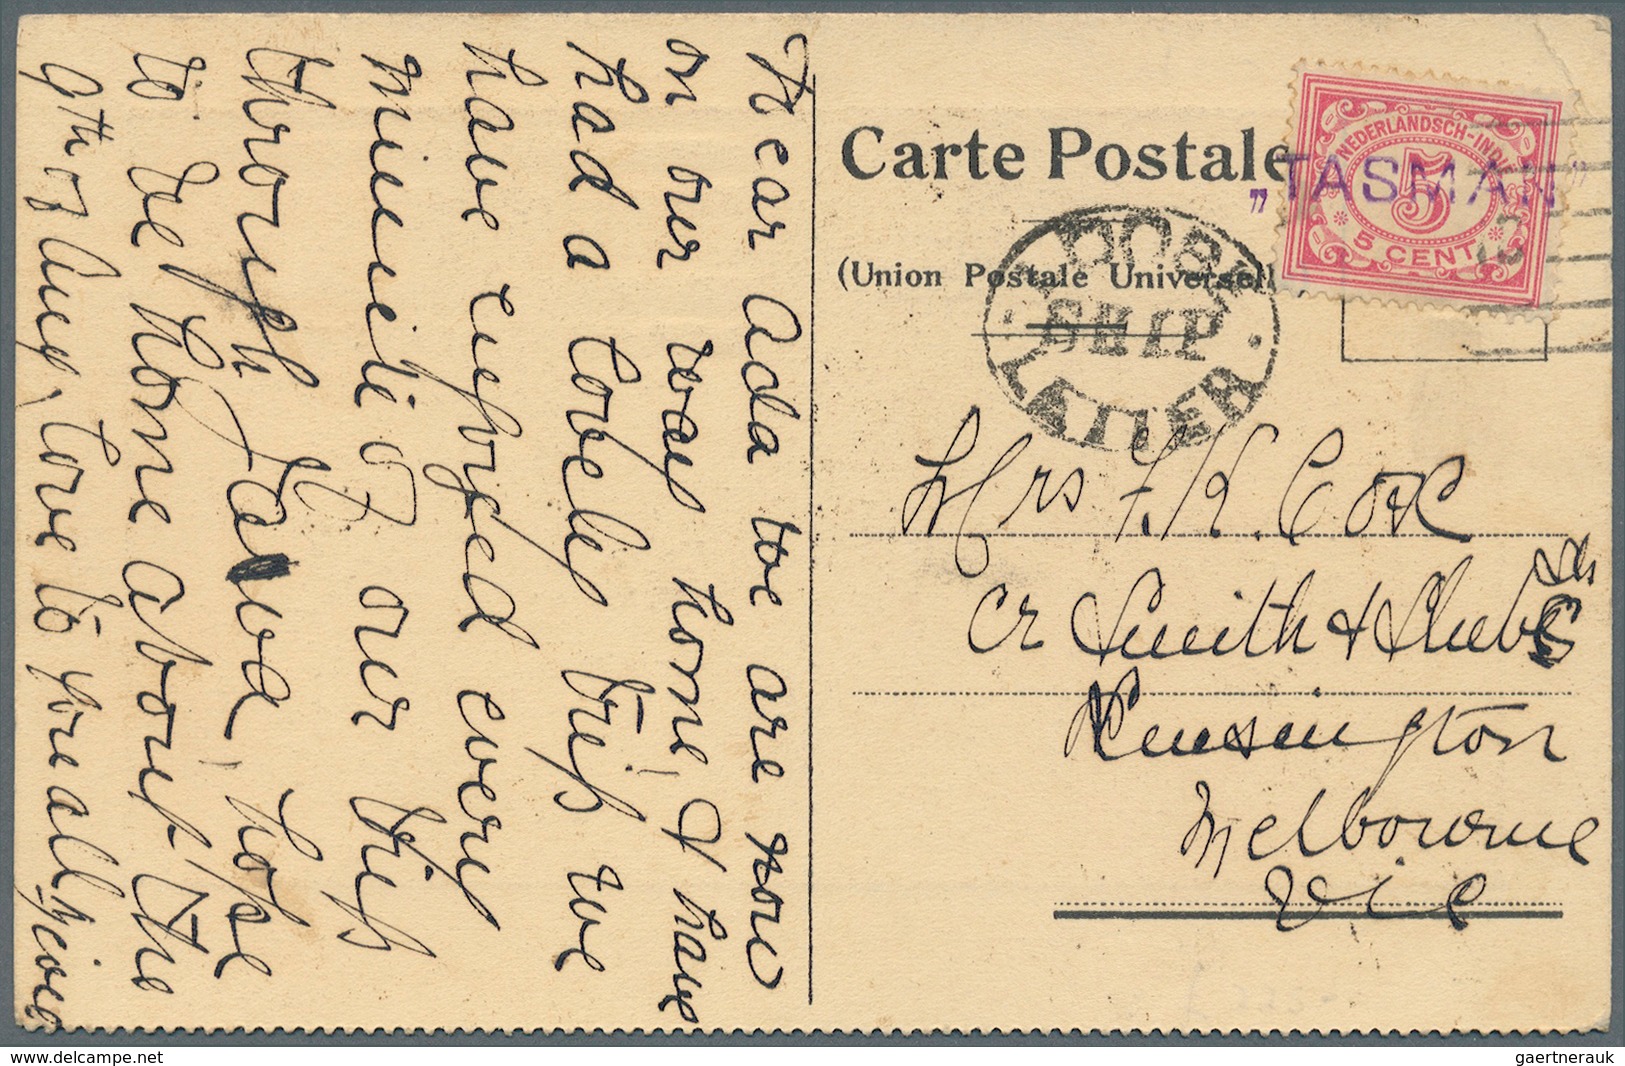 Dear Ada we are now
on our way home & have
had a lovely trip we
have enjoyed every
minute of our trip
through Java, hope
to be home about the
9th of Aug, love to you all
Carte Postale
(Union Postale Universell
NEDERLANDSCH-INDIË
5
5 CENT
„TASMAN"
LOOSE
SHIP
LETTER
Mrs F. K. Cox
Cr Smith & Stubbs Sts
Kensington
Melbourne
Vic
www.delcampe.net
gaertnerauk